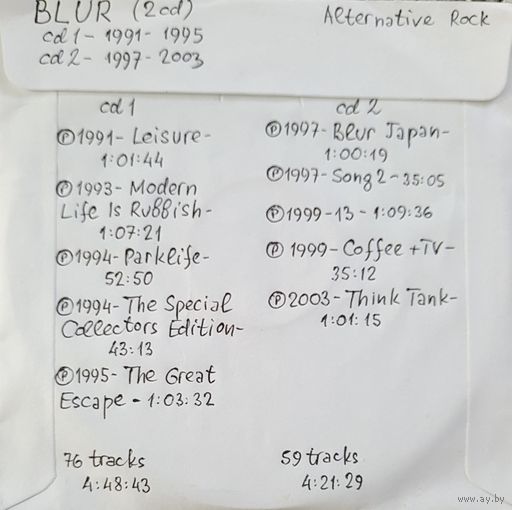 BLUR (2cd)
Alternative Rock
cd 1 - 1991 - 1995
cd 2 - 1997 - 2003
cd 1
℗1991 - Leisure -
1:01:44
℗1993 - Modern
Life Is Rubbish -
1:07:21
℗1994 - Parklife -
52:50
℗1994 - The Special
Collectors Edition -
43:13
℗1995 - The Great
Escape - 1:03:32
76 tracks
4:48:43
cd 2
℗1997 - Blur Japan -
1:00:19
℗1997 - Song 2 - 35:05
℗1999 - 13 - 1:09:36
℗ 1999 - Coffee + TV -
35:12
℗2003 - Think Tank -
1:01:15
59 tracks
4:21:29
www.ay.by